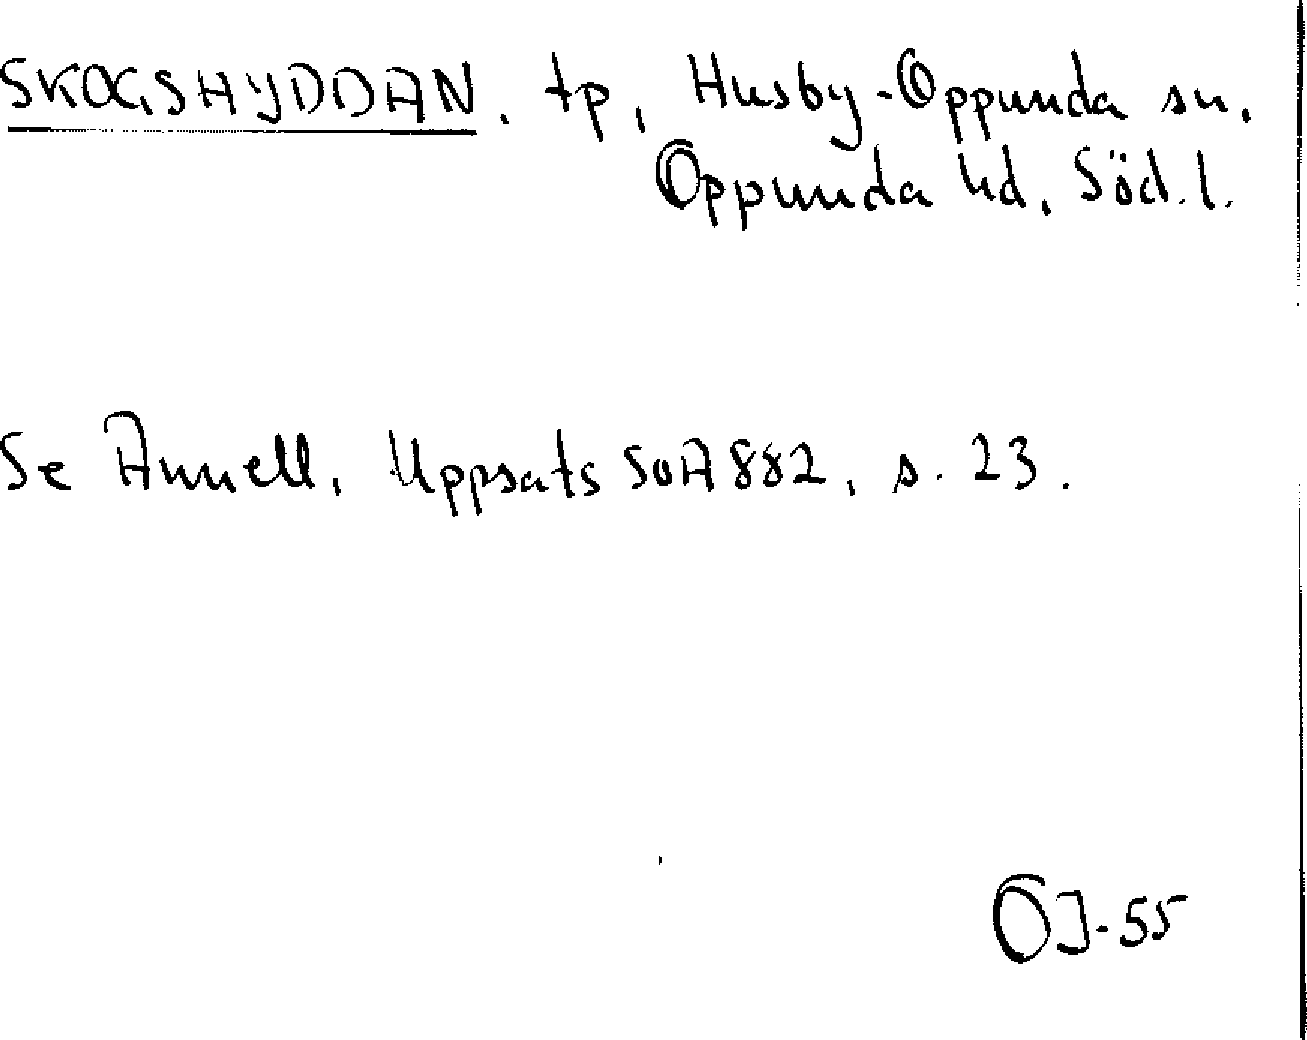 SKOGSHYDDAN. tp, Husby-Oppunda sn,
Oppunda hd, Söd.l.
Se Annell, Uppsats SOA 882, s. 23.
OJ-55